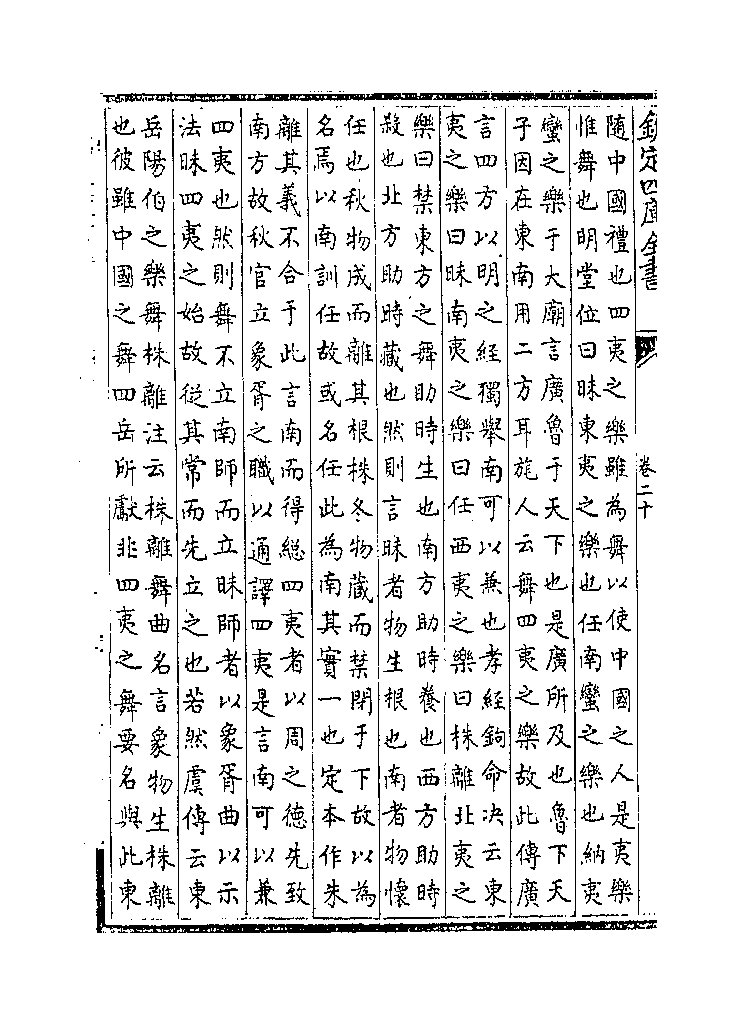 欽定四庫全書
卷二十
隨中國禮也四夷之樂雖為舞以使中國之人是夷樂
惟舞也明堂位曰昧東夷之樂也任南蠻之樂也納夷
蠻之樂于大廟言廣魯于天下也是廣所及也魯下天
子因在東南用二方耳旄人云舞四夷之樂故此傳廣
言四方以明之經獨舉南可以兼也孝經鉤命决云東
夷之樂曰昧南夷之樂曰任西夷之樂曰株離北夷之
樂曰禁東方之舞助時生也南方助時養也西方助時
殺也北方助時藏也然則言昧者物生根也南者物懷
任也秋物成而離其根株冬物藏而禁閉于下故以為
名焉以南訓任故或名任此為南其實一也定本作朱
離其義不合于此言南而得總四夷者以周之德先致
南方故秋官立象胥之職以通譯四夷是言南可以兼
四夷也然則舞不立南師而立昧師者以象胥曲以示
法昧四夷之始故從其常而先立之也若然虞傳云東
岳陽伯之樂舞株離注云株離舞曲名言象物生株離
也彼雖中國之舞四岳所獻非四夷之舞要名與此東